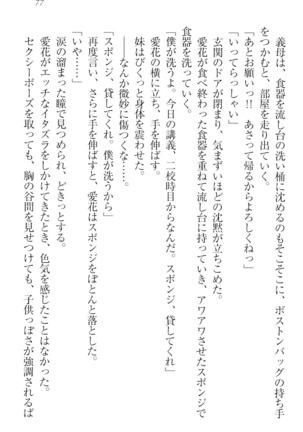 77
義母は、食器を流し台の洗い桶に沈めるのもそこそこに、ボストンバッグの持ち手
をつかむと、部屋を走り出ていく。
「あとお願いっ!! あさって帰るからよろしくねっ」
「いってらっしゃい」
玄関のドアが閉まり、気まずいほどの沈黙が立ちこめた。
愛花が食べ終わった食器を重ねて流し台に持っていき、アワアワさせたスポンジで
食器を洗っていく。
「僕が洗うよ。今日の講義、二校時目からなんだ。スポンジ、貸してくれ」
愛花の横に立ち、手を伸ばす。
妹はびくっと身体を震わせた。
――なんか微妙に傷つくな……。
「スポンジ、貸してくれ。僕が洗うから」
再度言い、さらに手を伸ばすと、愛花はスポンジをぽとんと落とした。
「いや……」
涙の溜まった瞳で見つめられ、どきっとする。
愛花がエッチなイタズラをしかけてきたとき、色気を感じたことはなかった。
セクシーポーズを取っても、胸の谷間を見せつけても、子供っぽさが強調されるば